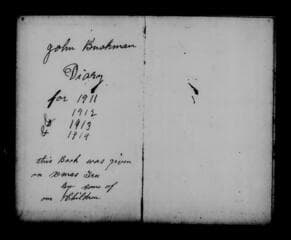 John Buckman
Diary
for 1911
1912
& 1913
& 1914
this Book was given
on xmas Tree
By one of
our Children